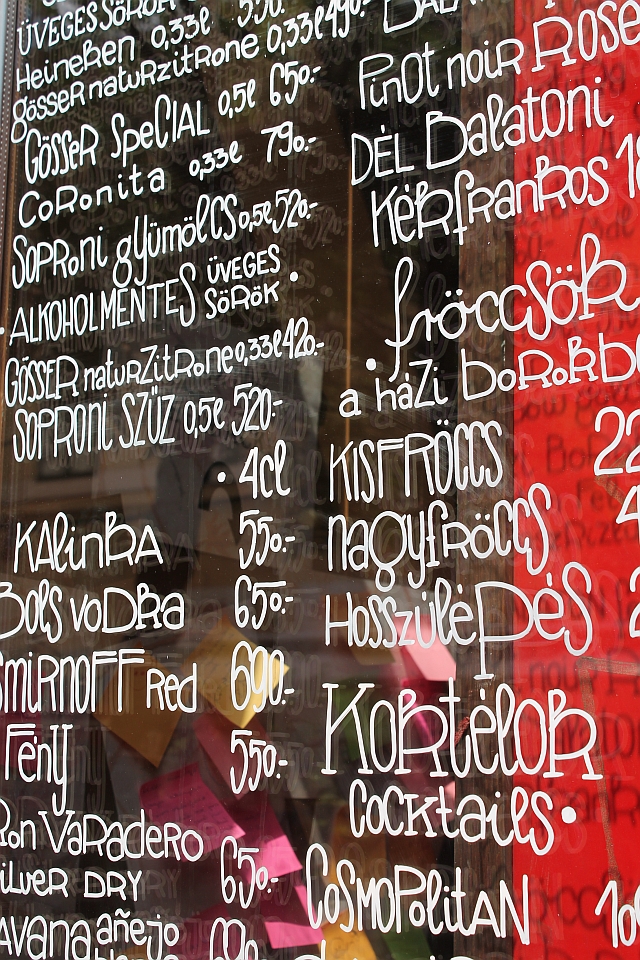 ÜVEGES SÖRÖK
Heineken 0,33l 550.-
Gösser naturzitrone 0,33l 490.-
Gösser Special 0,5l 650.-
Coronita 0,33l 790.-
Soproni gyümölcs 0,5l 520.-
• ALKOHOLMENTES ÜVEGES SÖRÖK •
Gösser naturzitrone 0,33l 420.-
Soproni Szűz 0,5l 520.-
• 4cl
Kalinka 550.-
Bols vodka 650.-
Smirnoff Red 690.-
Fény 550.-
Ron Varadero
Silver Dry 650.-
añejo
Pinot noir Rose
Dél Balatoni
Kékfrankos
• fröccsök
a házi
Kisfröccs 22
Nagyfröccs 4
Hosszúlépés 2
Kortelor
Cocktails •
Cosmopolitan